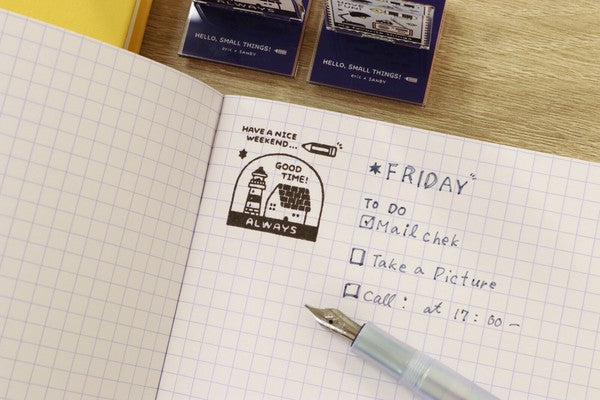 ALWAYS
HELLO, SMALL THINGS!
eric × SANBY
HELLO, SMALL THINGS!
eric × SANBY
HAVE A NICE
WEEKEND...
GOOD
TIME!
ALWAYS
*FRIDAY
TO DO
☑Mail chek
☐ Take a Picture
☐ Call : at 17:00~